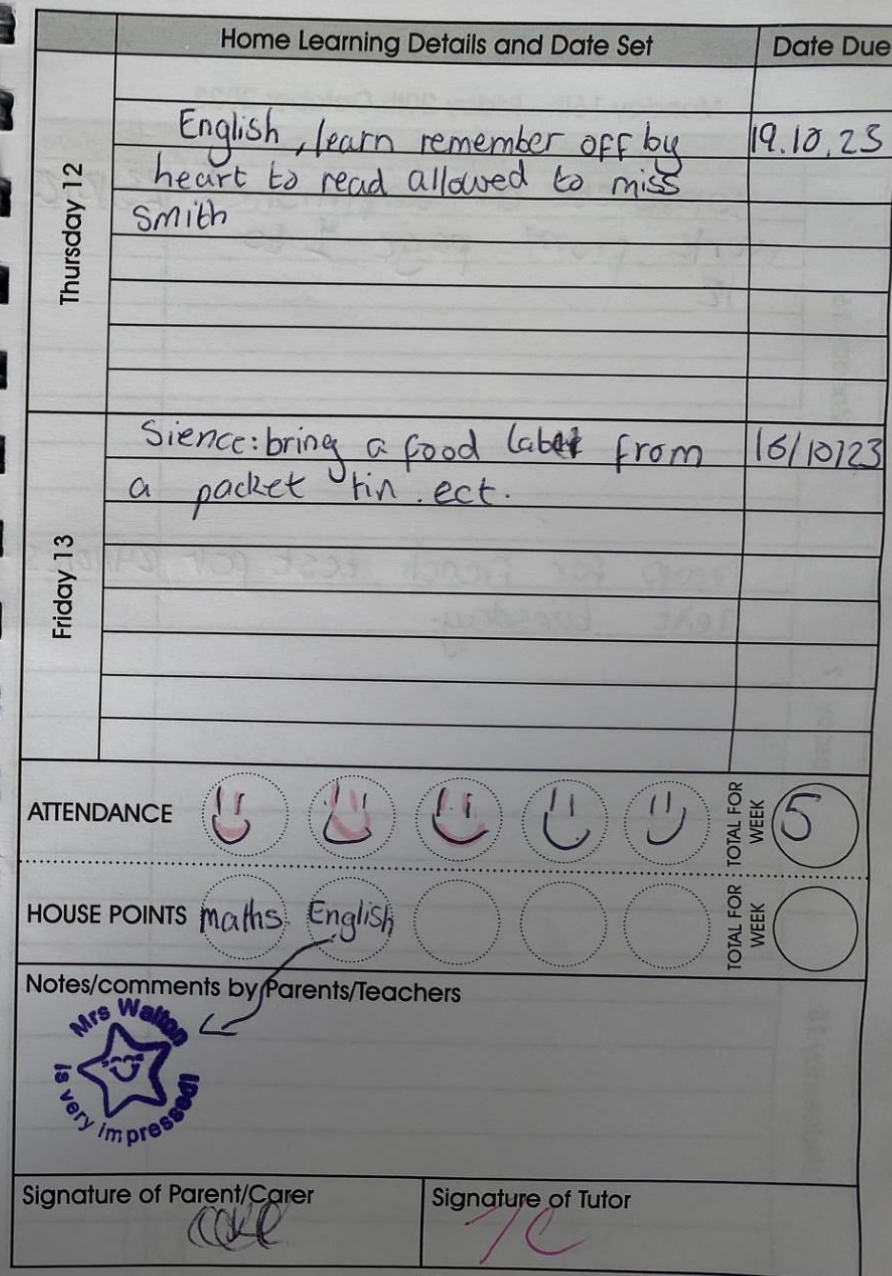 Home Learning Details and Date Set Date Due
Thursday 12
English, learn remember off by 19.10.23
heart to read allowed to miss
Smith
Friday 13
Sience: bring a food label from 16/10/23
a packet tin. ect.
ATTENDANCE TOTAL FOR WEEK 5
HOUSE POINTS maths English TOTAL FOR WEEK
Notes/comments by Parents/Teachers
Mrs Walton
is very impressed
Signature of Parent/Carer Signature of Tutor